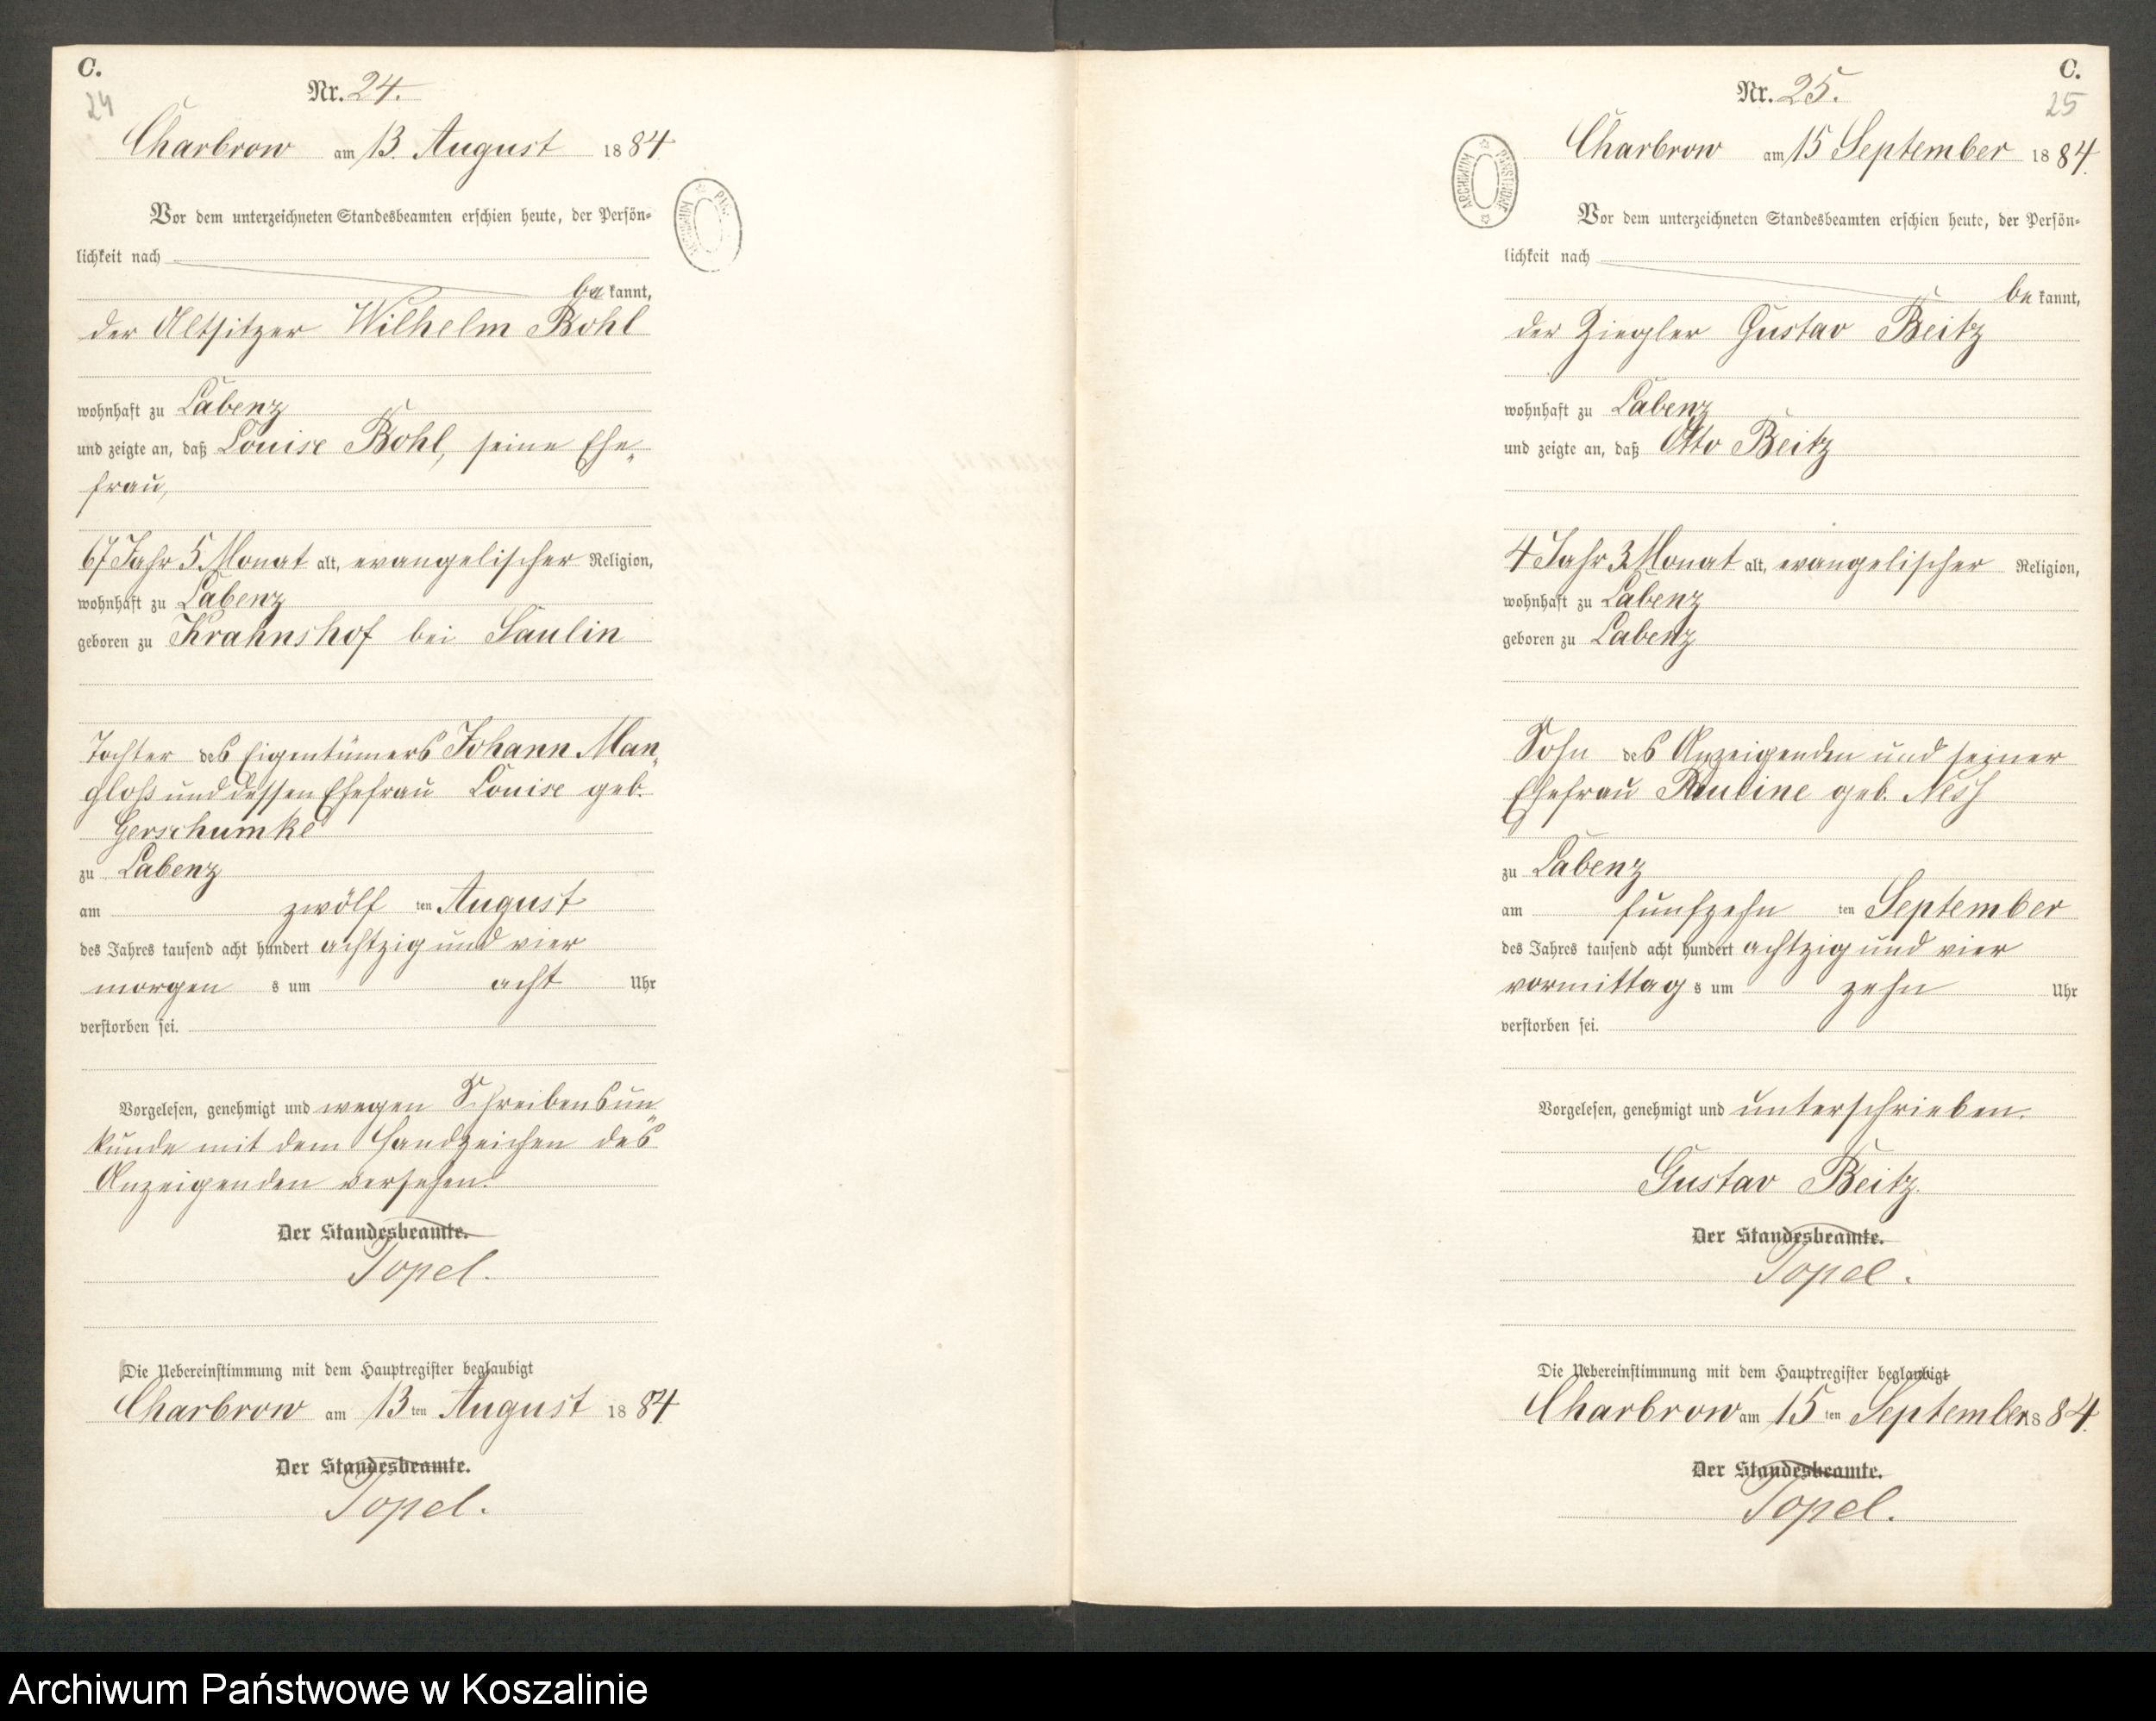 C.
24
Nr. 24.
Charbrow am 13. August 1884.
Vor dem unterzeichneten Standesbeamten erschien heute, der Persön-
lichkeit nach
bekannt,
der Altsitzer Wilhelm Bohl
wohnhaft zu Labenz
und zeigte an, daß Louise Bohl, seine Ehe-
frau,
67 Jahr 5 Monat alt, evangelischer Religion,
wohnhaft zu Labenz
geboren zu Krahnshof bei Saulin
Tochter des Eigentümers Johann Man-
gloß und dessen Ehefrau Louise geb.
Gerschumke
zu Labenz
am zwölf ten August
des Jahres tausend acht hundert achtzig und vier
morgens um acht Uhr
verstorben sei.
Vorgelesen, genehmigt und wegen Schreibensun-
kunde mit dem Handzeichen des
Anzeigenden versehen.
Der Standesbeamte.
Topel.
Die Uebereinstimmung mit dem Hauptregister beglaubigt
Charbrow am 13ten August 1884
Der Standesbeamte.
Topel.
ARCHIWUM PAŃ
C.
25
Nr. 25.
Charbrow am 15 September 1884.
ARCHIWUM PAŃSTWOWE
Vor dem unterzeichneten Standesbeamten erschien heute, der Persön-
lichkeit nach
bekannt,
der Ziegler Gustav Beitz
wohnhaft zu Labenz
und zeigte an, daß Otto Beitz
4 Jahr 3 Monat alt, evangelischer Religion,
wohnhaft zu Labenz
geboren zu Labenz
Sohn des Anzeigenden und seiner
Ehefrau Pauline geb. Ness
zu Labenz
am fünfzehn ten September
des Jahres tausend acht hundert achtzig und vier
vormittags um zehn Uhr
verstorben sei.
Vorgelesen, genehmigt und unterschrieben.
Gustav Beitz.
Der Standesbeamte.
Topel.
Die Uebereinstimmung mit dem Hauptregister beglaubigt
Charbrow am 15ten September 1884.
Der Standesbeamte.
Topel.
Archiwum Państwowe w Koszalinie